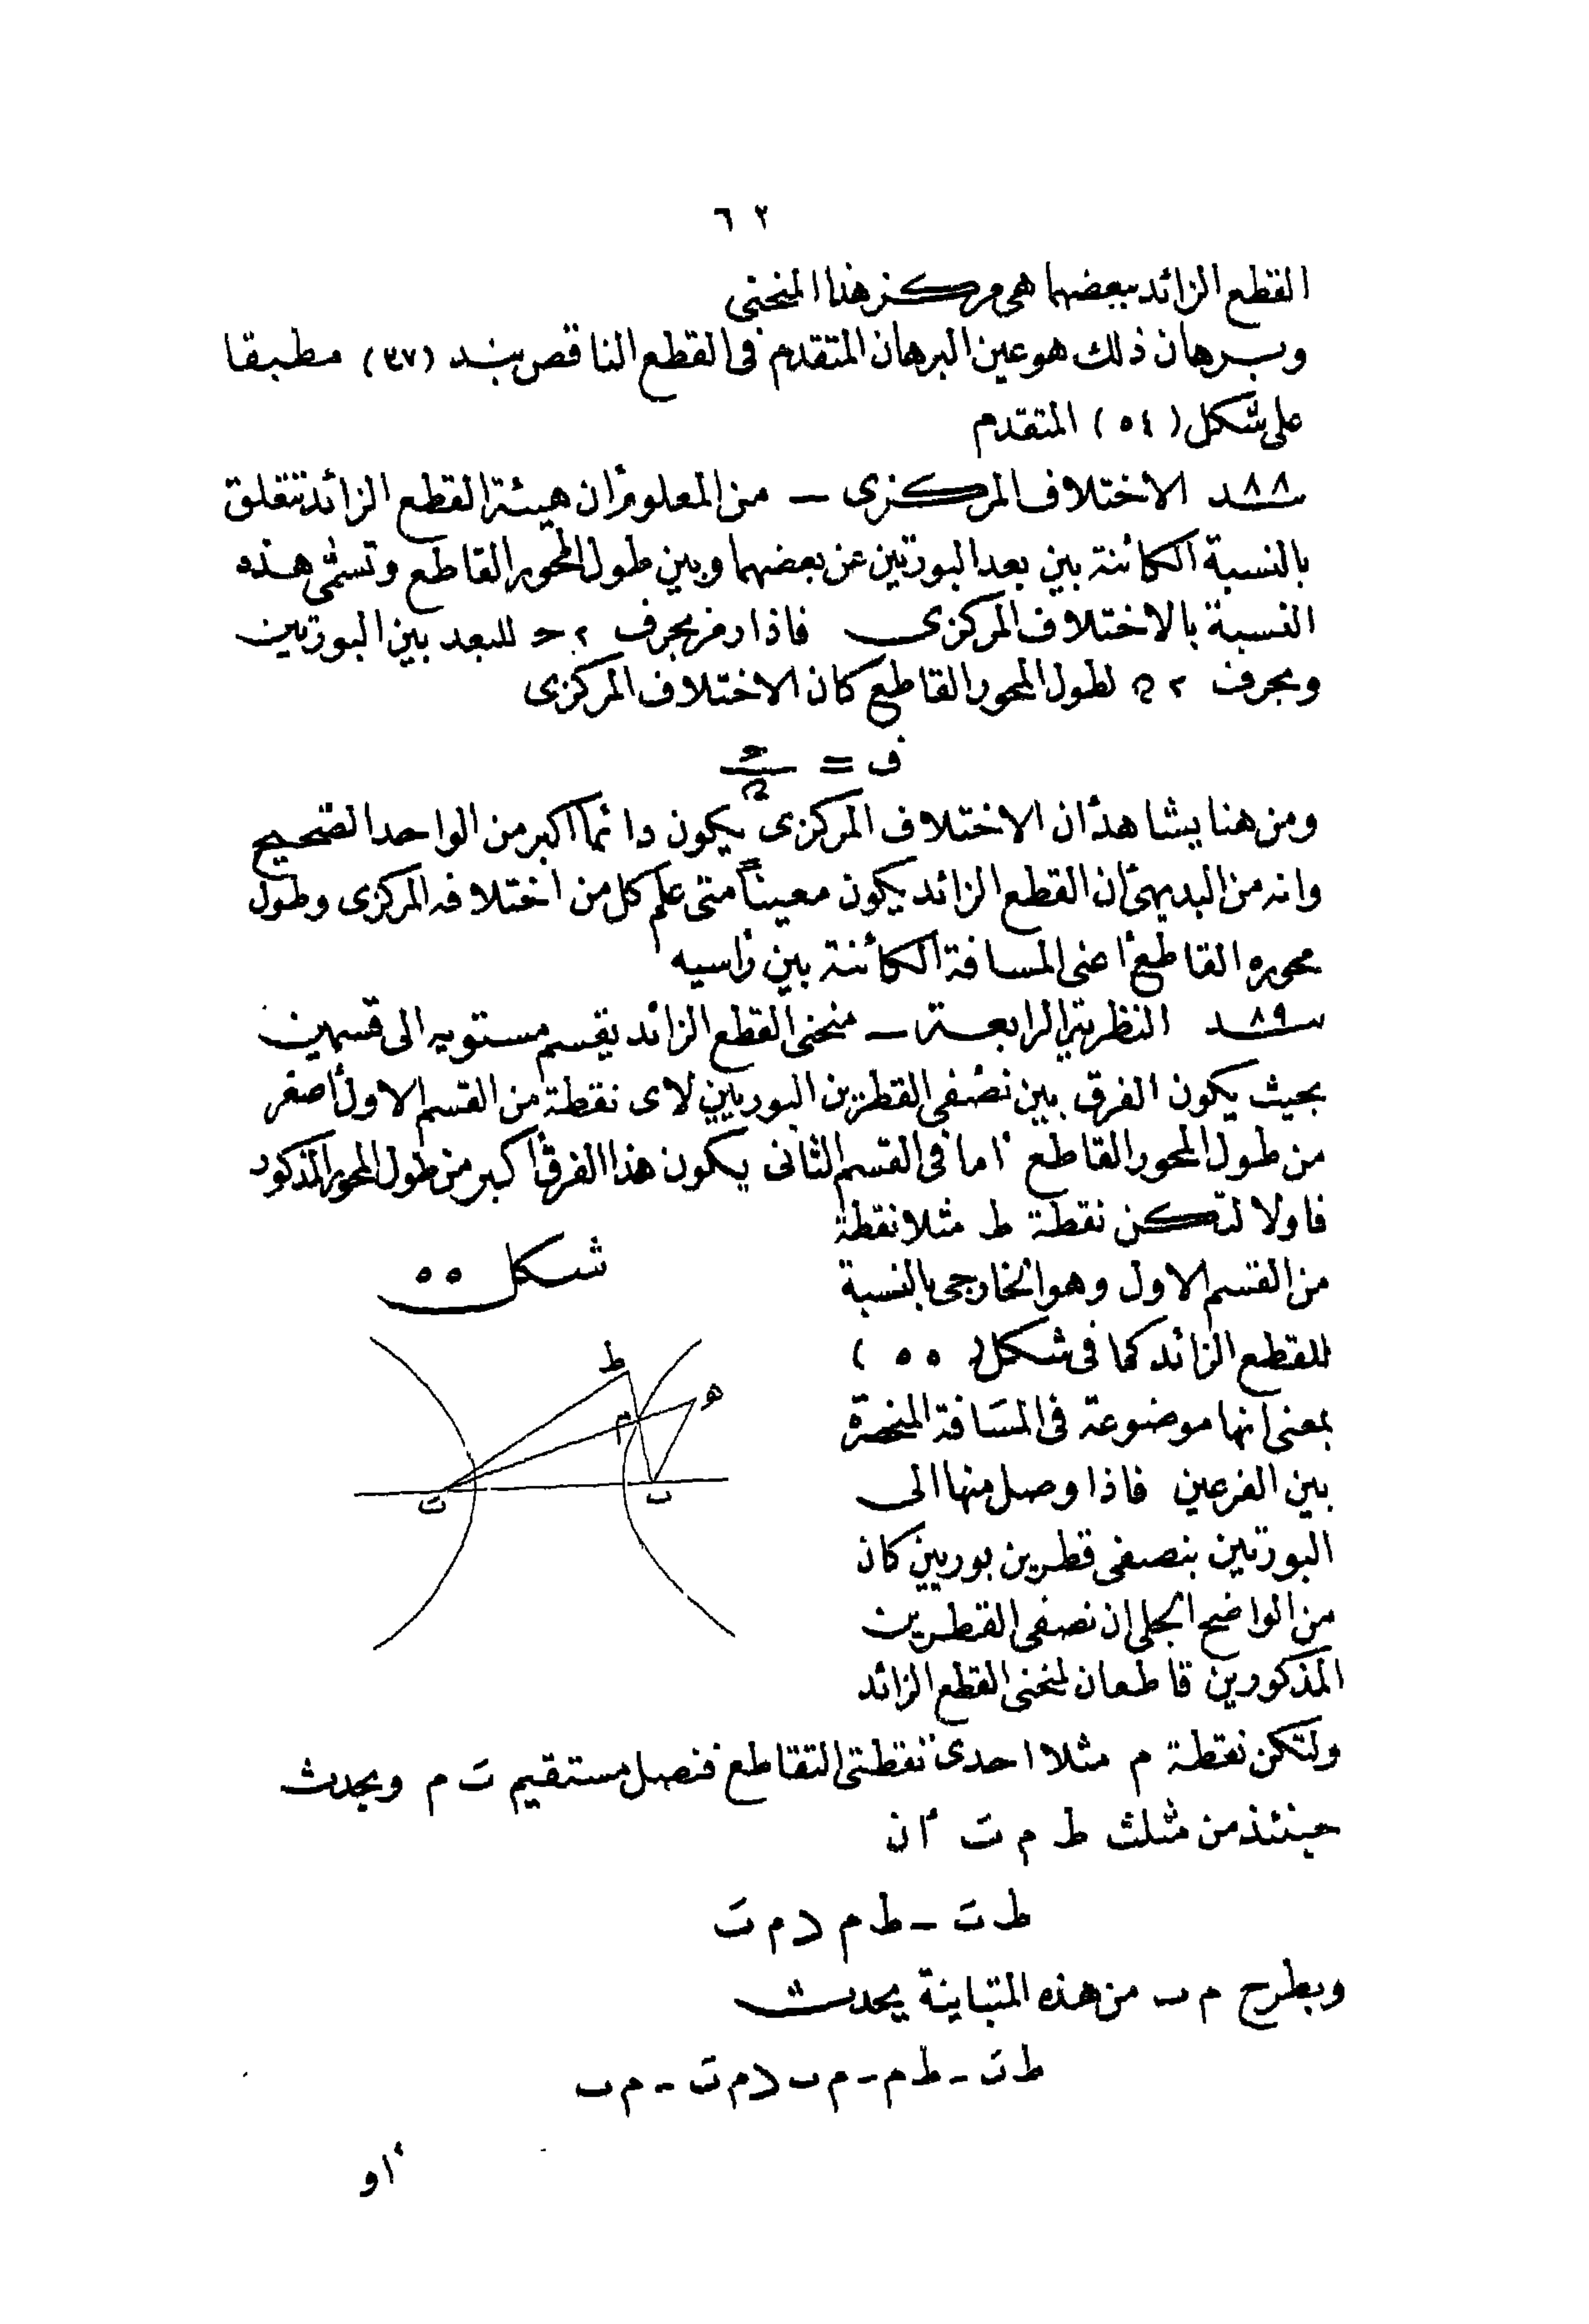 ٦٢
القطع الزائد ببعضهما هى مركز هذا المنحنى
وبرهان ذلك هو عين البرهان المتقدم فى القطع الناقص بند (٣٧) مطبقا
على شكل (٥٤) المتقدم
٨٨ ند الاختلاف المركزى — من المعلوم أن هيئة القطع الزائد تتعلق
بالنسبة الكائنة بين بعد البورتين عن بعضهما وبين طول المحور القاطع وتسمى هذه
النسبة بالاختلاف المركزى فاذا رمز بحرف ٢ح للبعد بين البورتين
وبحرف ٢ﻫ لطول المحور القاطع كان الاختلاف المركزى
ف = ح/ﻫ
ومن هنا يشاهد أن الاختلاف المركزى يكون دائما اكبر من الواحد الصحيح
وانه من البديهى أن القطع الزائد يكون معيناً متى علم كل من اختلافه المركزى وطول
محوره القاطع أعنى المسافة الكائنة بين رأسيه
٨٩ ند النظرية الرابعة — منحنى القطع الزائد يقسم مستويه الى قسمين
بحيث يكون الفرق بين نصفى القطرين البوريين لاى نقطة من القسم الاول أصغر
من طول المحور القاطع أما فى القسم الثانى يكون هذا الفرق أكبر من طول المحور المذكور
فاولا لتكن نقطة ط مثلا نقطة
من القسم الاول وهو الخارجى بالنسبة
للقطع الزائد كما فى شكل (٥٥)
بمعنى انها موضوعة فى المسافة المنحصرة
بين الفرعين فاذا وصل منها الى
البورتين بنصفى قطرين بوريين كان
من الواضح الجلى ان نصفى القطرين
المذكورين قاطعان لمنحنى القطع الزائد
شكل ٥٥
ط
ه
م
بَ
ب
ولتكن نقطة م مثلا احدى نقطتى التقاطع فنصل مستقيم بَ م ويحدث
حينئذ من مثلث ط م بَ أن
ط بَ - ط م < م بَ
وبطرح م ب من هذه المتباينة يحدث
ط بَ - ط م - م ب < م بَ - م ب
أو